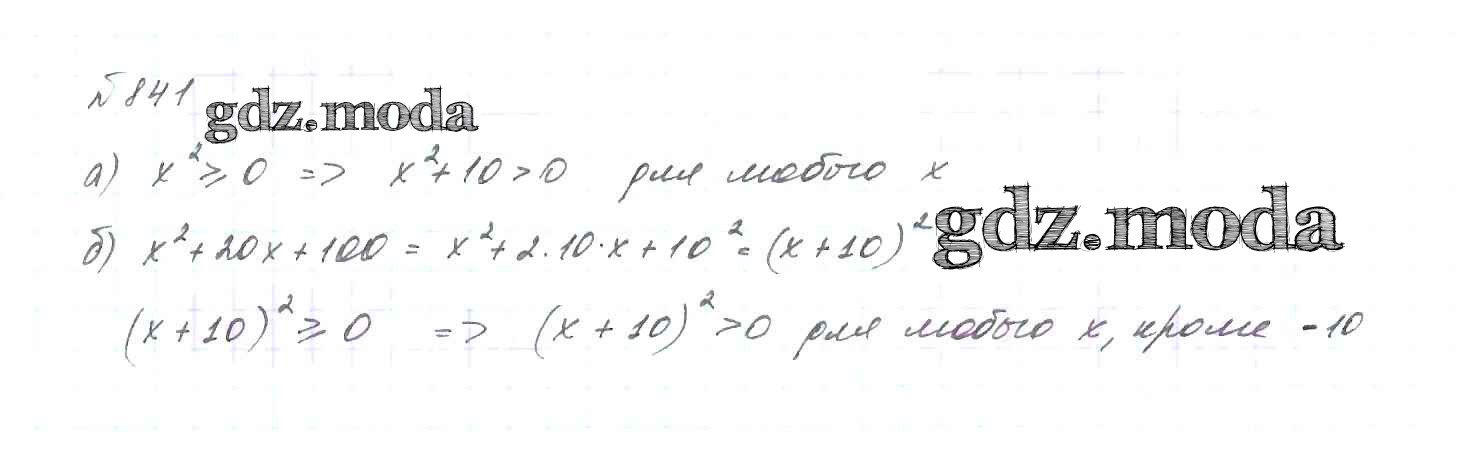 № 841
gdz.moda
а) x² ≥ 0 => x² + 10 > 0 для любого x
б) x² + 20x + 100 = x² + 2·10·x + 10² = (x + 10)²
gdz.moda
(x + 10)² ≥ 0 => (x + 10)² > 0 для любого x, кроме -10